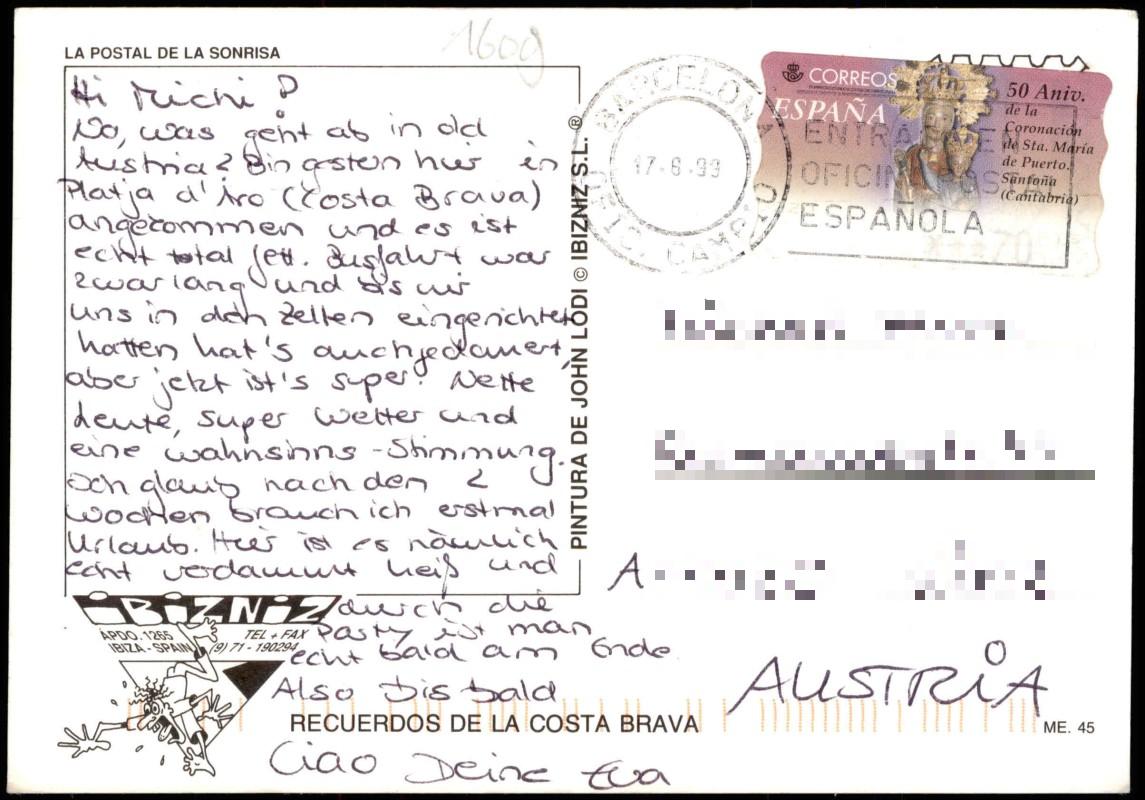 160g
LA POSTAL DE LA SONRISA
Hi Michi!
No, was geht ab in old
Austria? Bin gestern hier in
Platja d'Aro (Costa Brava)
angekommen und es ist
echt total fett. Busfahrt war
zwar lang und bis wir
uns in den Zelten eingerichtet
hatten hat's auch gedauert,
aber jetzt ist's super. Nette
Leute, super Wetter und
eine wahnsinns-Stimmung.
Ich glaub nach den 2
Wochen brauch ich erstmal
Urlaub. Hier ist es nämlich
echt verdammt heiß und
durch die
Party ist man
echt bald am Ende.
Also bis bald
Ciao Deine Eva
PINTURA DE JOHN LODI © IBIZNIZ S.L. ®
iBiZNiZ
APDO. 1265
IBIZA - SPAIN
TEL + FAX
(9) 71 - 190294
RECUERDOS DE LA COSTA BRAVA
ME. 45
BARCELONA
17-8-99
CAMPZO
CORREOS
ESPAÑA
50 Aniv.
de la
Coronación
de Sta. María
de Puerto.
Santoña
(Cantabria)
ESPAÑOLA
A
AUSTRIA